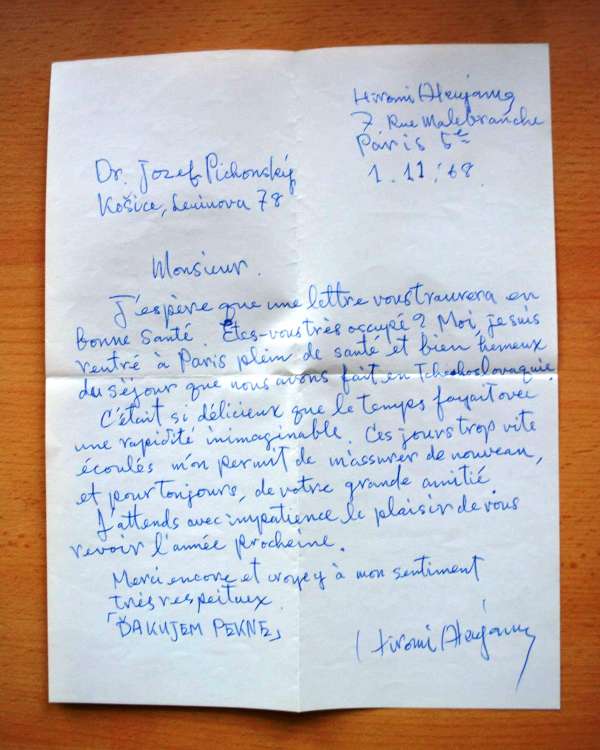 Hiromi
7 Rue Malebranche
Paris 5e
1.11.'68
Dr. Jozef Pichonský
Košice, Leninova 78
Monsieur.
J'espère que une lettre vous trauvera en
bonne santé. Êtes-vous très occupé? Moi, je suis
rentré à Paris plein de santé et bien heureux
du séjour que nous avons fait en Tchechoslovaquie.
C'était si délicieux que le temps fuyait avec
une rapidité inimaginable. Ces jours trop vite
écoulés m'on permit de m'assurer de nouveau,
et pour toujours, de votre grande amitié.
J'attends avec impatience le plaisir de vous
revoir l'année procheine.
Merci encore et croyez à mon sentiment
très respectueux.
「ĎAKUJEM PEKNE」
Hiromi